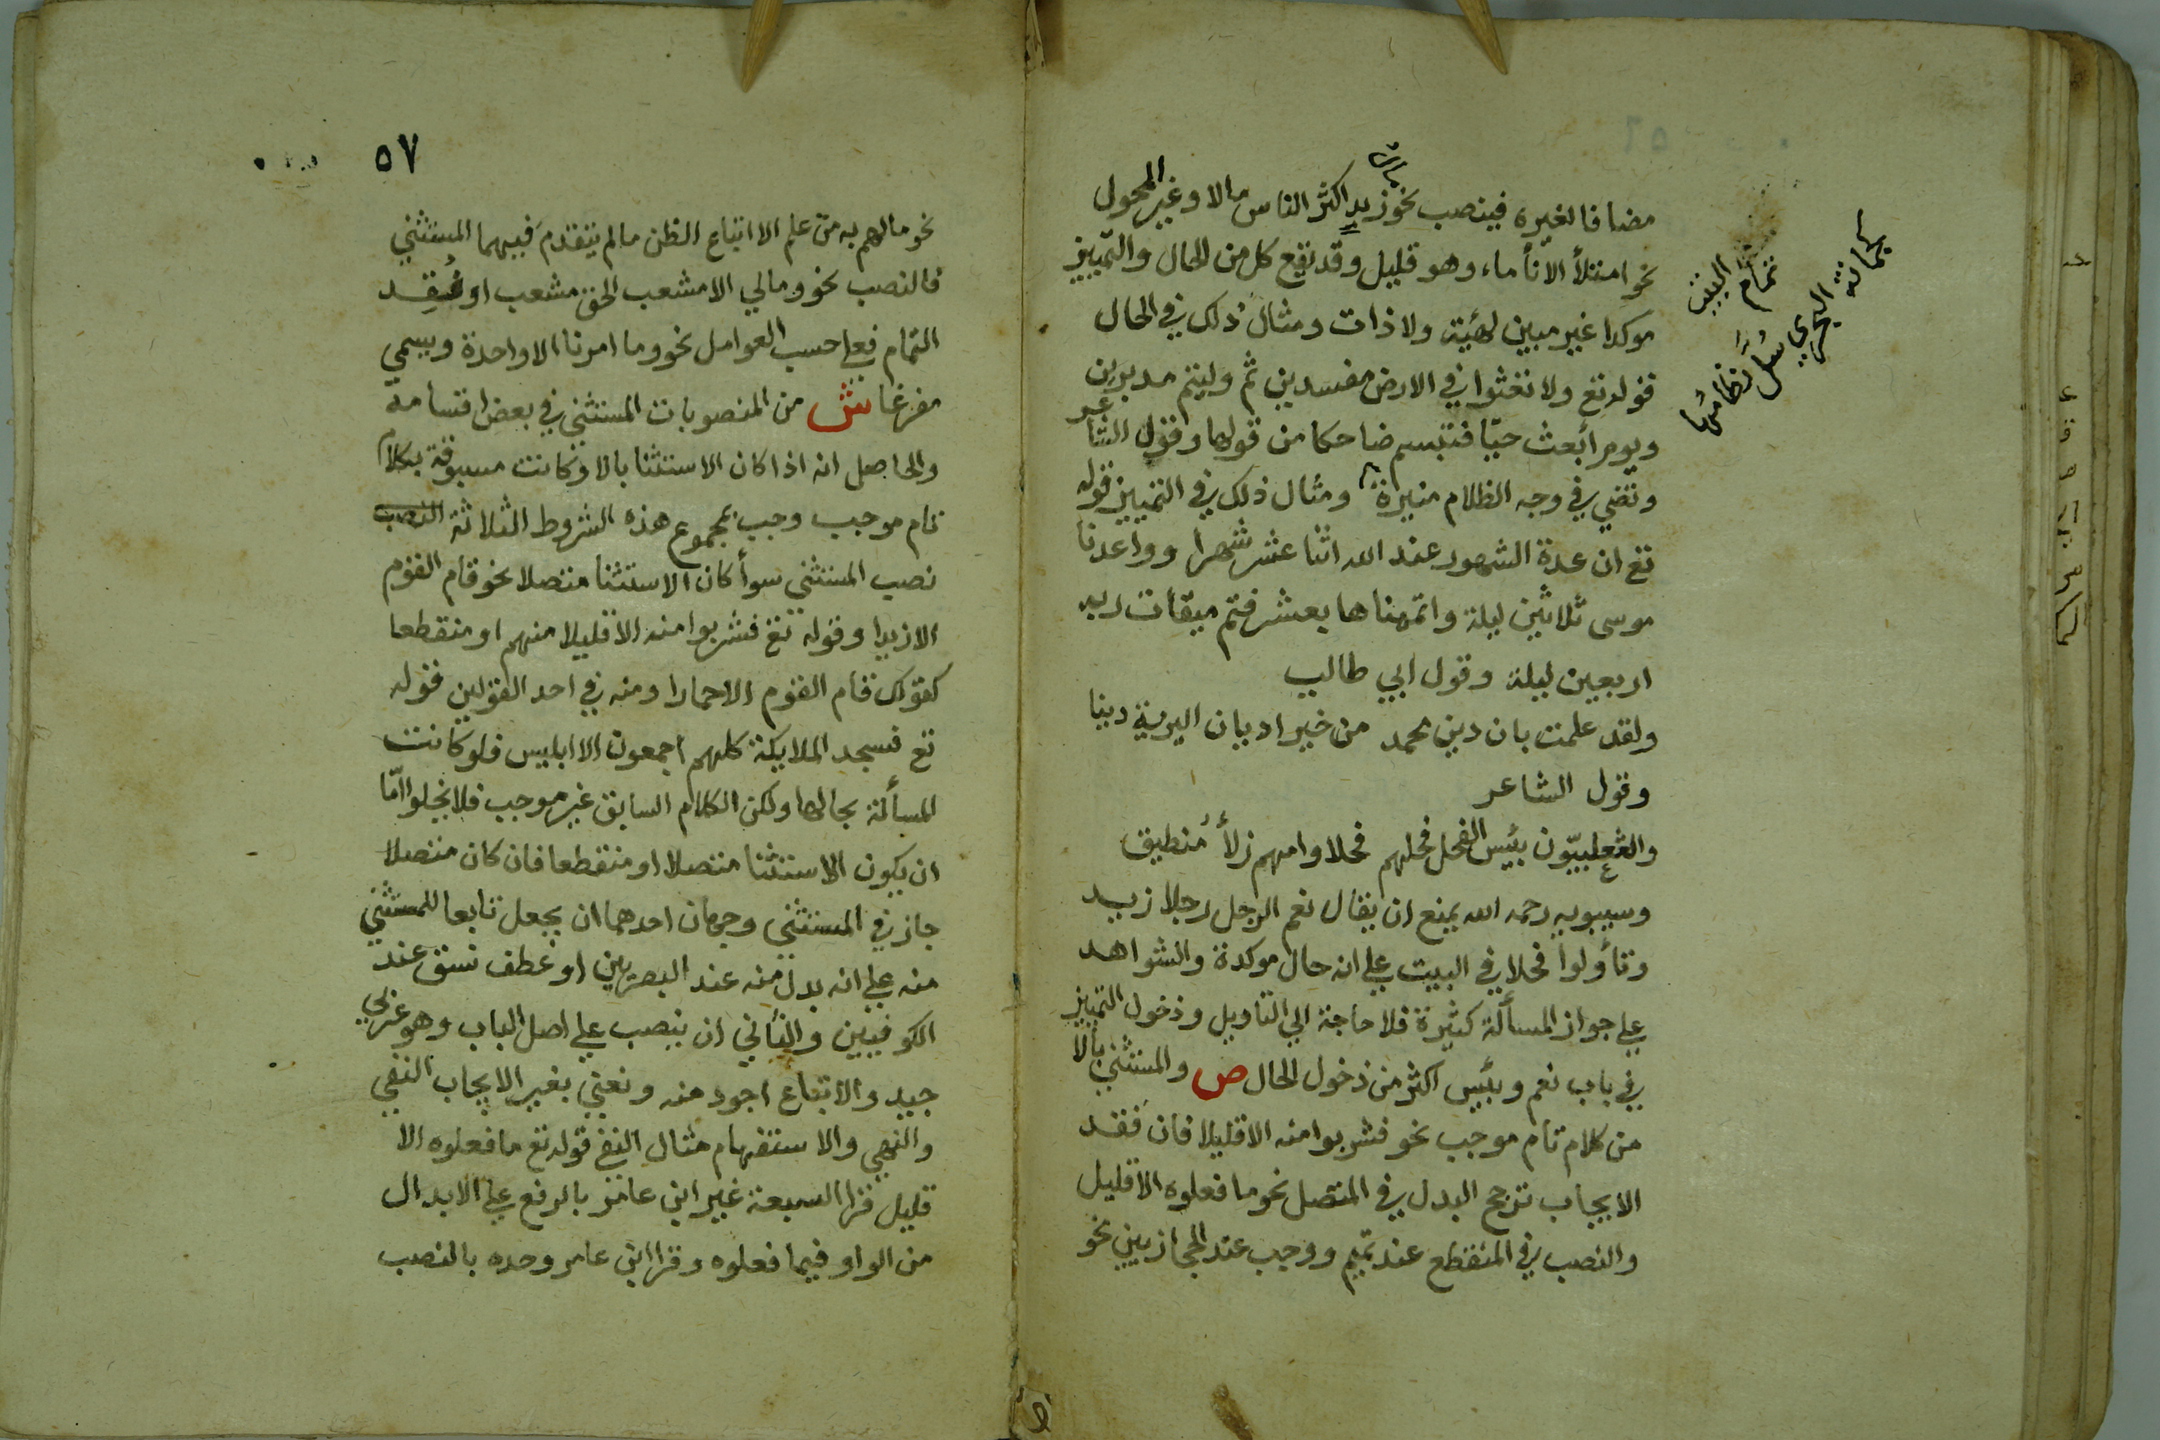 مضافا لغيره فينصب نحو زيد اكثر الناس مالا وغير المحول
نحو امتلأ الاناء ماء وهو قليل وقد تقع كل من الحال والتمييز
موكدا غير مبين لهئية ولا ذات ومثال ذلك في الحال
قوله تع ولا تعثوا في الارض مفسدين ثم وليتم مدبرين
ويوم أبعث حيّا فتبسم ضاحكا من قولها وقول الشاعر
وتضي في وجه الظلام منيرة ومثال ذلك في التمييز قوله
تع ان عدة الشهور عند الله اثنا عشر شهرا وواعدنا
موسى ثلاثين ليلة واتممناها بعشر فتم ميقات ربه
اربعين ليلة وقول ابي طالب
ولقد علمت بان دين محمد من خير اديان البرية دينا
وقول الشاعر
والتغلبيّون بئيس الفحل فحلهم فحلا وامهم زلأ مُنطيق
وسيبويه رحمه الله يمنع ان يقال نعم الرجل رجلا زيد
وتأولوا فحلا في البيت علي انه حال موكدة والشواهد
علي جواز المسألة كثيرة فلا حاجة الي التاويل ودخول التمييز
في باب نعم وبئيس اكثر من دخول الحال ص والمستثني بالا
من كلام تام موجب نحو فشربوا منه الا قليلا فان فقد
الايجاب ترجح البدل في المتصل نحو ما فعلوه الا قليل
والنصب في المنقطع عند تميم ووجب عند الحجازيين نحو
تمام البيت
كجمانة البحري سُلَّ نظامُها
٥٧
نحو مالهم به من علم الا اتباع الظن مالم يتقدم فيهما المستثني
فالنصب نحو ومالي الا مشعب الحق مشعب او فُقِد
التمام فعلى حسب العوامل نحو وما امرنا الا واحدة ويسمي
مفرغا ش من المنصوبات المستثني في بعض اقسامه
والحاصل انه اذا كان الاستثنا بالا وكانت مسبوقة بكلام
تام موجب وجب بمجموع هذه الشروط الثلاثة النصب
نصب المستثني سوأ كان الاستثنا متصلا نحو قام القوم
الا زيدا وقوله تع فشربوا منه الا قليلا منهم او منقطعا
كقولك قام القوم الا حمارا ومنه في احد القولين قوله
تع فسجد الملايكة كلهم اجمعون الا ابليس فلو كانت
المسألة بحالها ولكن الكلام السابق غير موجب فلا يخلوا امّا
ان يكون الاستثنا متصلا او منقطعا فان كان متصلا
جاز في المستثني وجهان احدهما ان يجعل تابعا للمستثني
منه علي انه بدل منه عند البصريين او عطف نسق عند
الكوفيين والثاني ان ينصب علي اصل الباب وهو عربي
جيد والاتباع اجود منه ونعني بغير الايجاب النفي
والنهي والاستفهام مثال النفي قوله تع ما فعلوه الا
قليل قرا السبعة غير ابن عامر بالرفع علي الابدال
من الواو فيما فعلوه وقرا ابن عامر وحده بالنصب